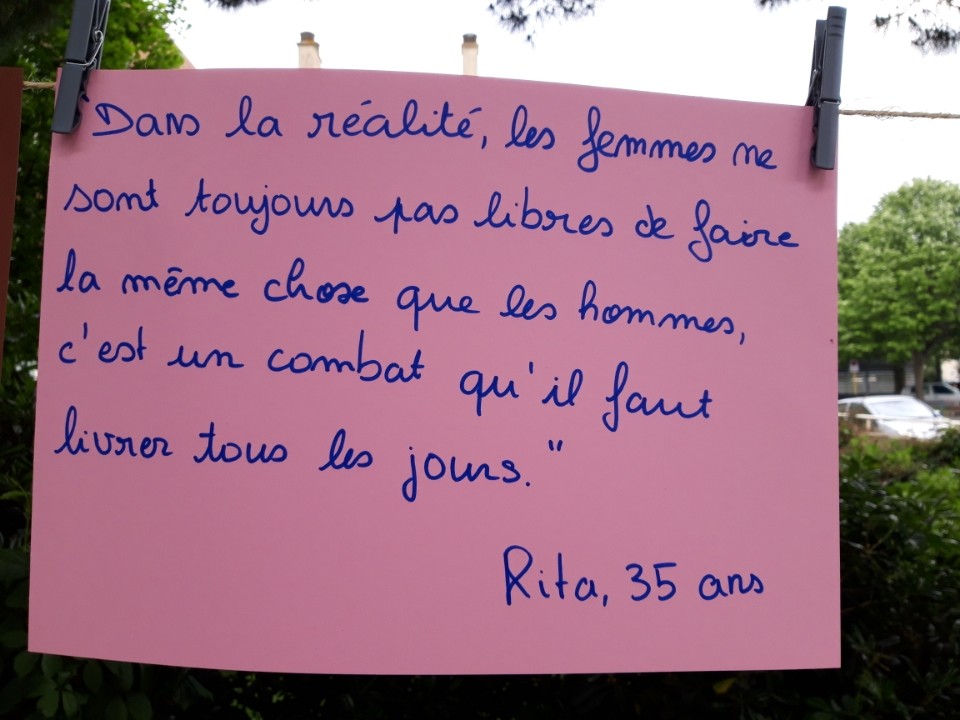 "Dans la réalité, les femmes ne
sont toujours pas libres de faire
la même chose que les hommes,
c'est un combat qu'il faut
livrer tous les jours."
Rita, 35 ans